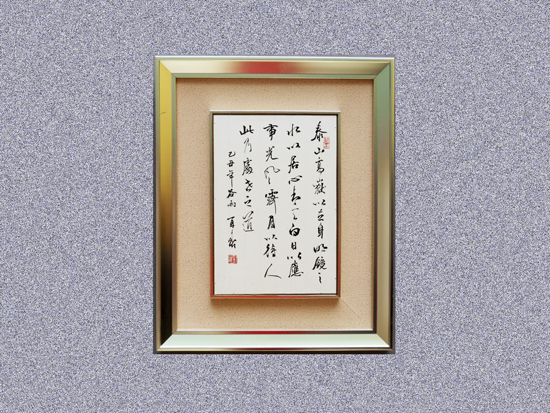 泰山高嶽以立身明鏡止
水以居心青天白日以應
事光风霽月以待人
此乃處世之道
乙丑年谷雨